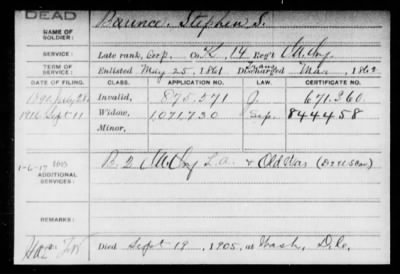 DEAD
NAME OF SOLDIER: Baunce, Stephen S.
SERVICE: Late rank, Corp. Co. K, 14 Reg't
TERM OF SERVICE: Enlisted May 25, 1861 Discharged Mar , 186
DATE OF FILING. CLASS. APPLICATION NO. LAW. CERTIFICATE NO.
1890 July 21 Invalid, 875,571 J. 671,360
1916 Sept 11 Widow, 1071730 844458
Minor,
1-6-17
ADDITIONAL SERVICES: B, 2 L.A. & Old War
REMARKS:
Died Sept 19, 1905, at Wash, D.C.